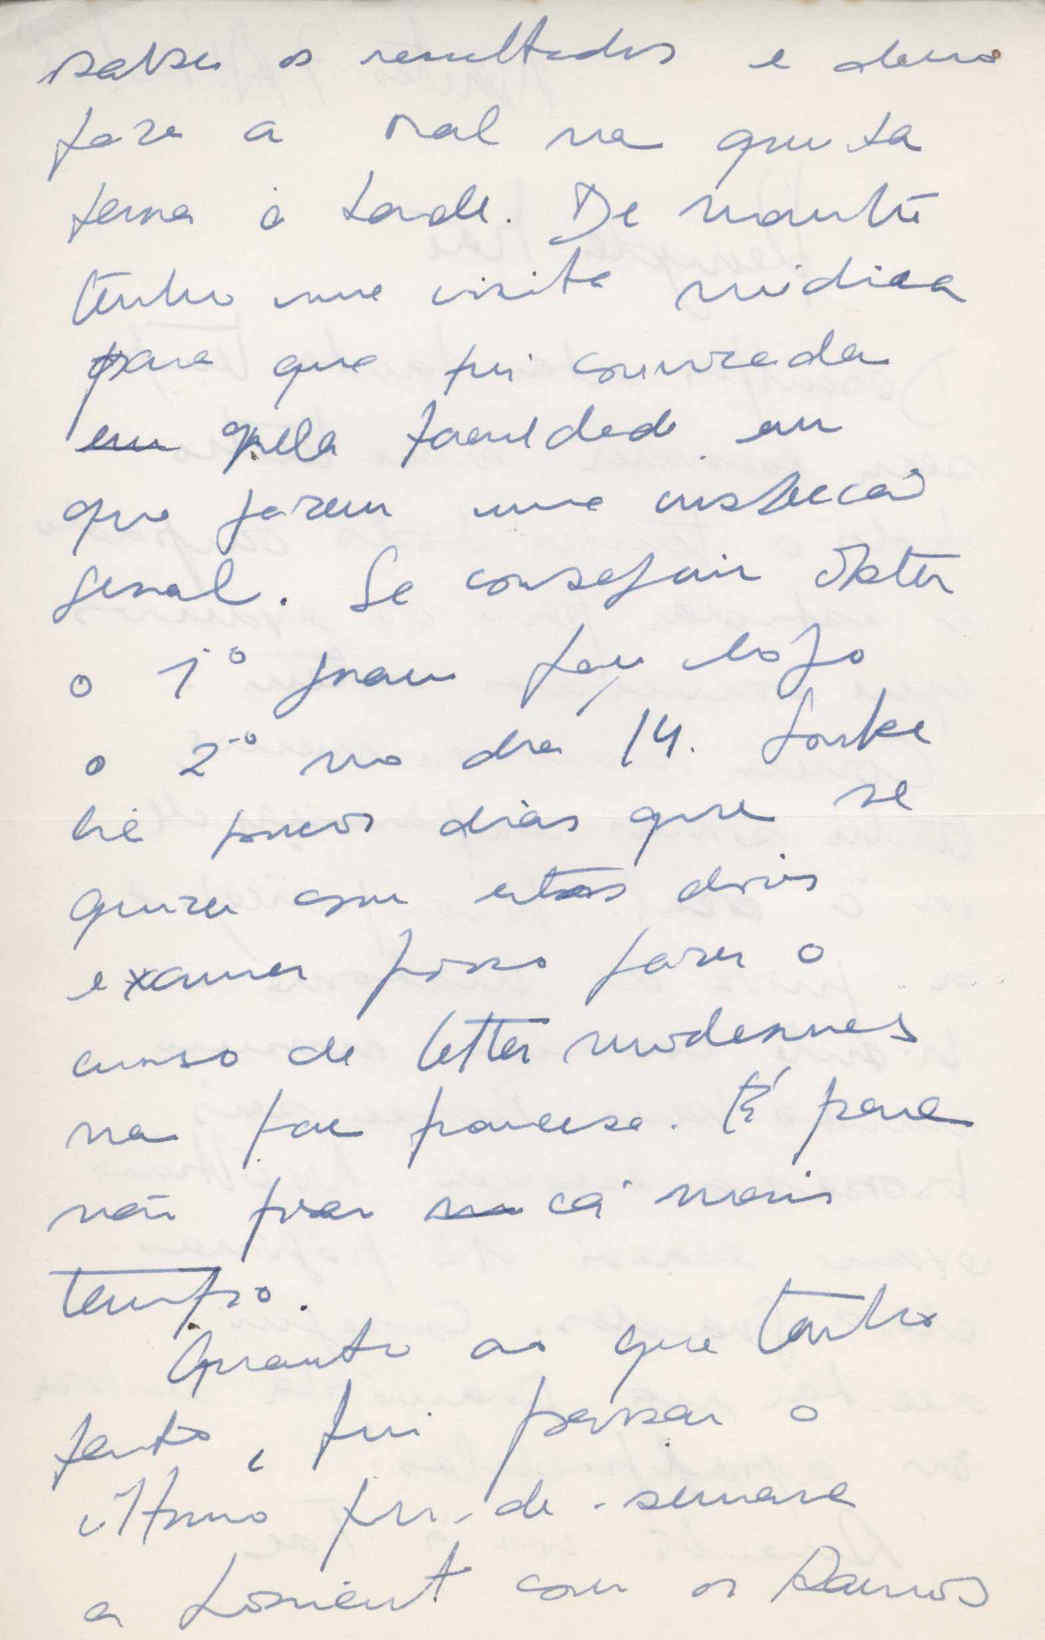 saber os resultados e devo
fazer a oral na quinta
feira à tarde. De manhã
tenho uma visita médica
para que fui convocada
em pela faculdade em
que fazem uma inspecção
geral. Se conseguir obter
o 1º grau faço logo
o 2º no dia 14. Soube
há poucos dias que se
quizer com estes dois
examens posso fazer o
curso de lettres modernes
na fac francesa. É para
não ficar na cá mais
tempo.
Quanto ao que tenho
feito, fui passar o
último fim-de-semana
a Lorient com os Ramos